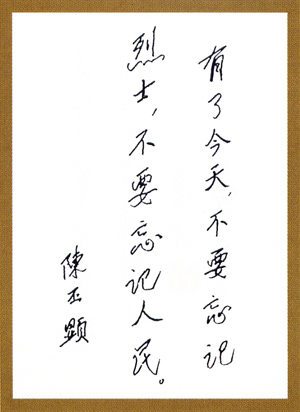 有了今天,不要忘记
烈士,不要忘记人民。
陳丕顯